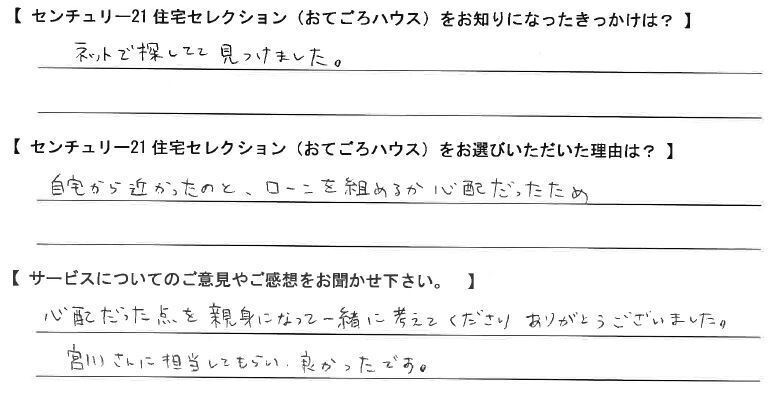 【 センチュリー21 住宅セレクション（おてごろハウス）をお知りになったきっかけは？ 】
ネットで探してて見つけました。
【 センチュリー21 住宅セレクション（おてごろハウス）をお選びいただいた理由は？ 】
自宅から近かったのと、ローンを組めるか心配だったため
【 サービスについてのご意見やご感想をお聞かせ下さい。 】
心配だった点を親身になって一緒に考えてくださり ありがとうございました。
宮川さんに担当してもらい、良かったです。